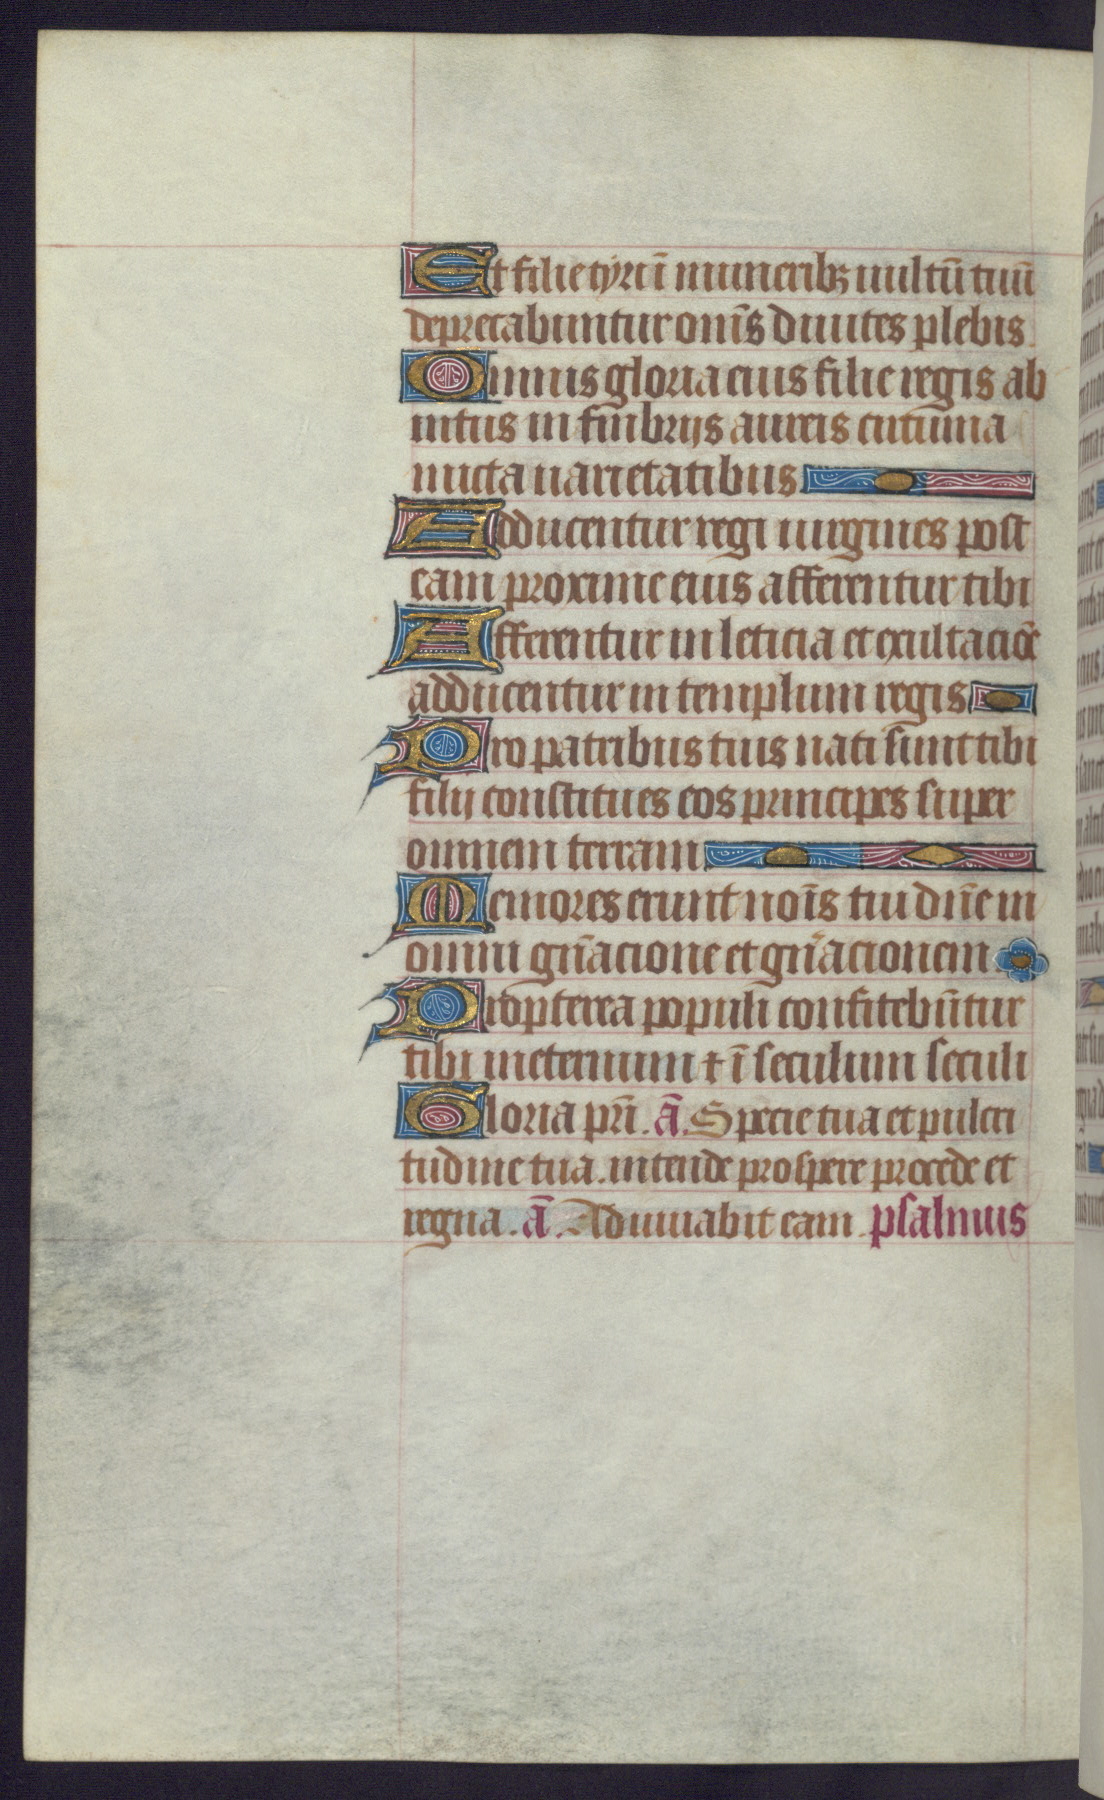 Et filie tyri ī muneribꝫ uultū tuū
deprecabuntur om̄s diuites plebis
Omnis gloria eius filie regis ab
intus in fimbrijs aureis circuma
micta uarietatibus
Adducentur regi uirgines post
eam proxime eius afferentur tibi
Afferentur in leticia et exultaciōe
adducentur in templum regis
Pro patribus tuis nati sunt tibi
filij constitues eos principes super
omnem terram
Memores erunt noīs tui dn̄e in
omni gn̄acione et gn̄acionem
Propterea populi confitebūtur
tibi in eternum ⁊ ī seculum seculi
Gloria pr̄i. ā. Specie tua et pulcri
tudine tua. intende prospere procede et
regna. ā. Adiuuabit eam. psalmus